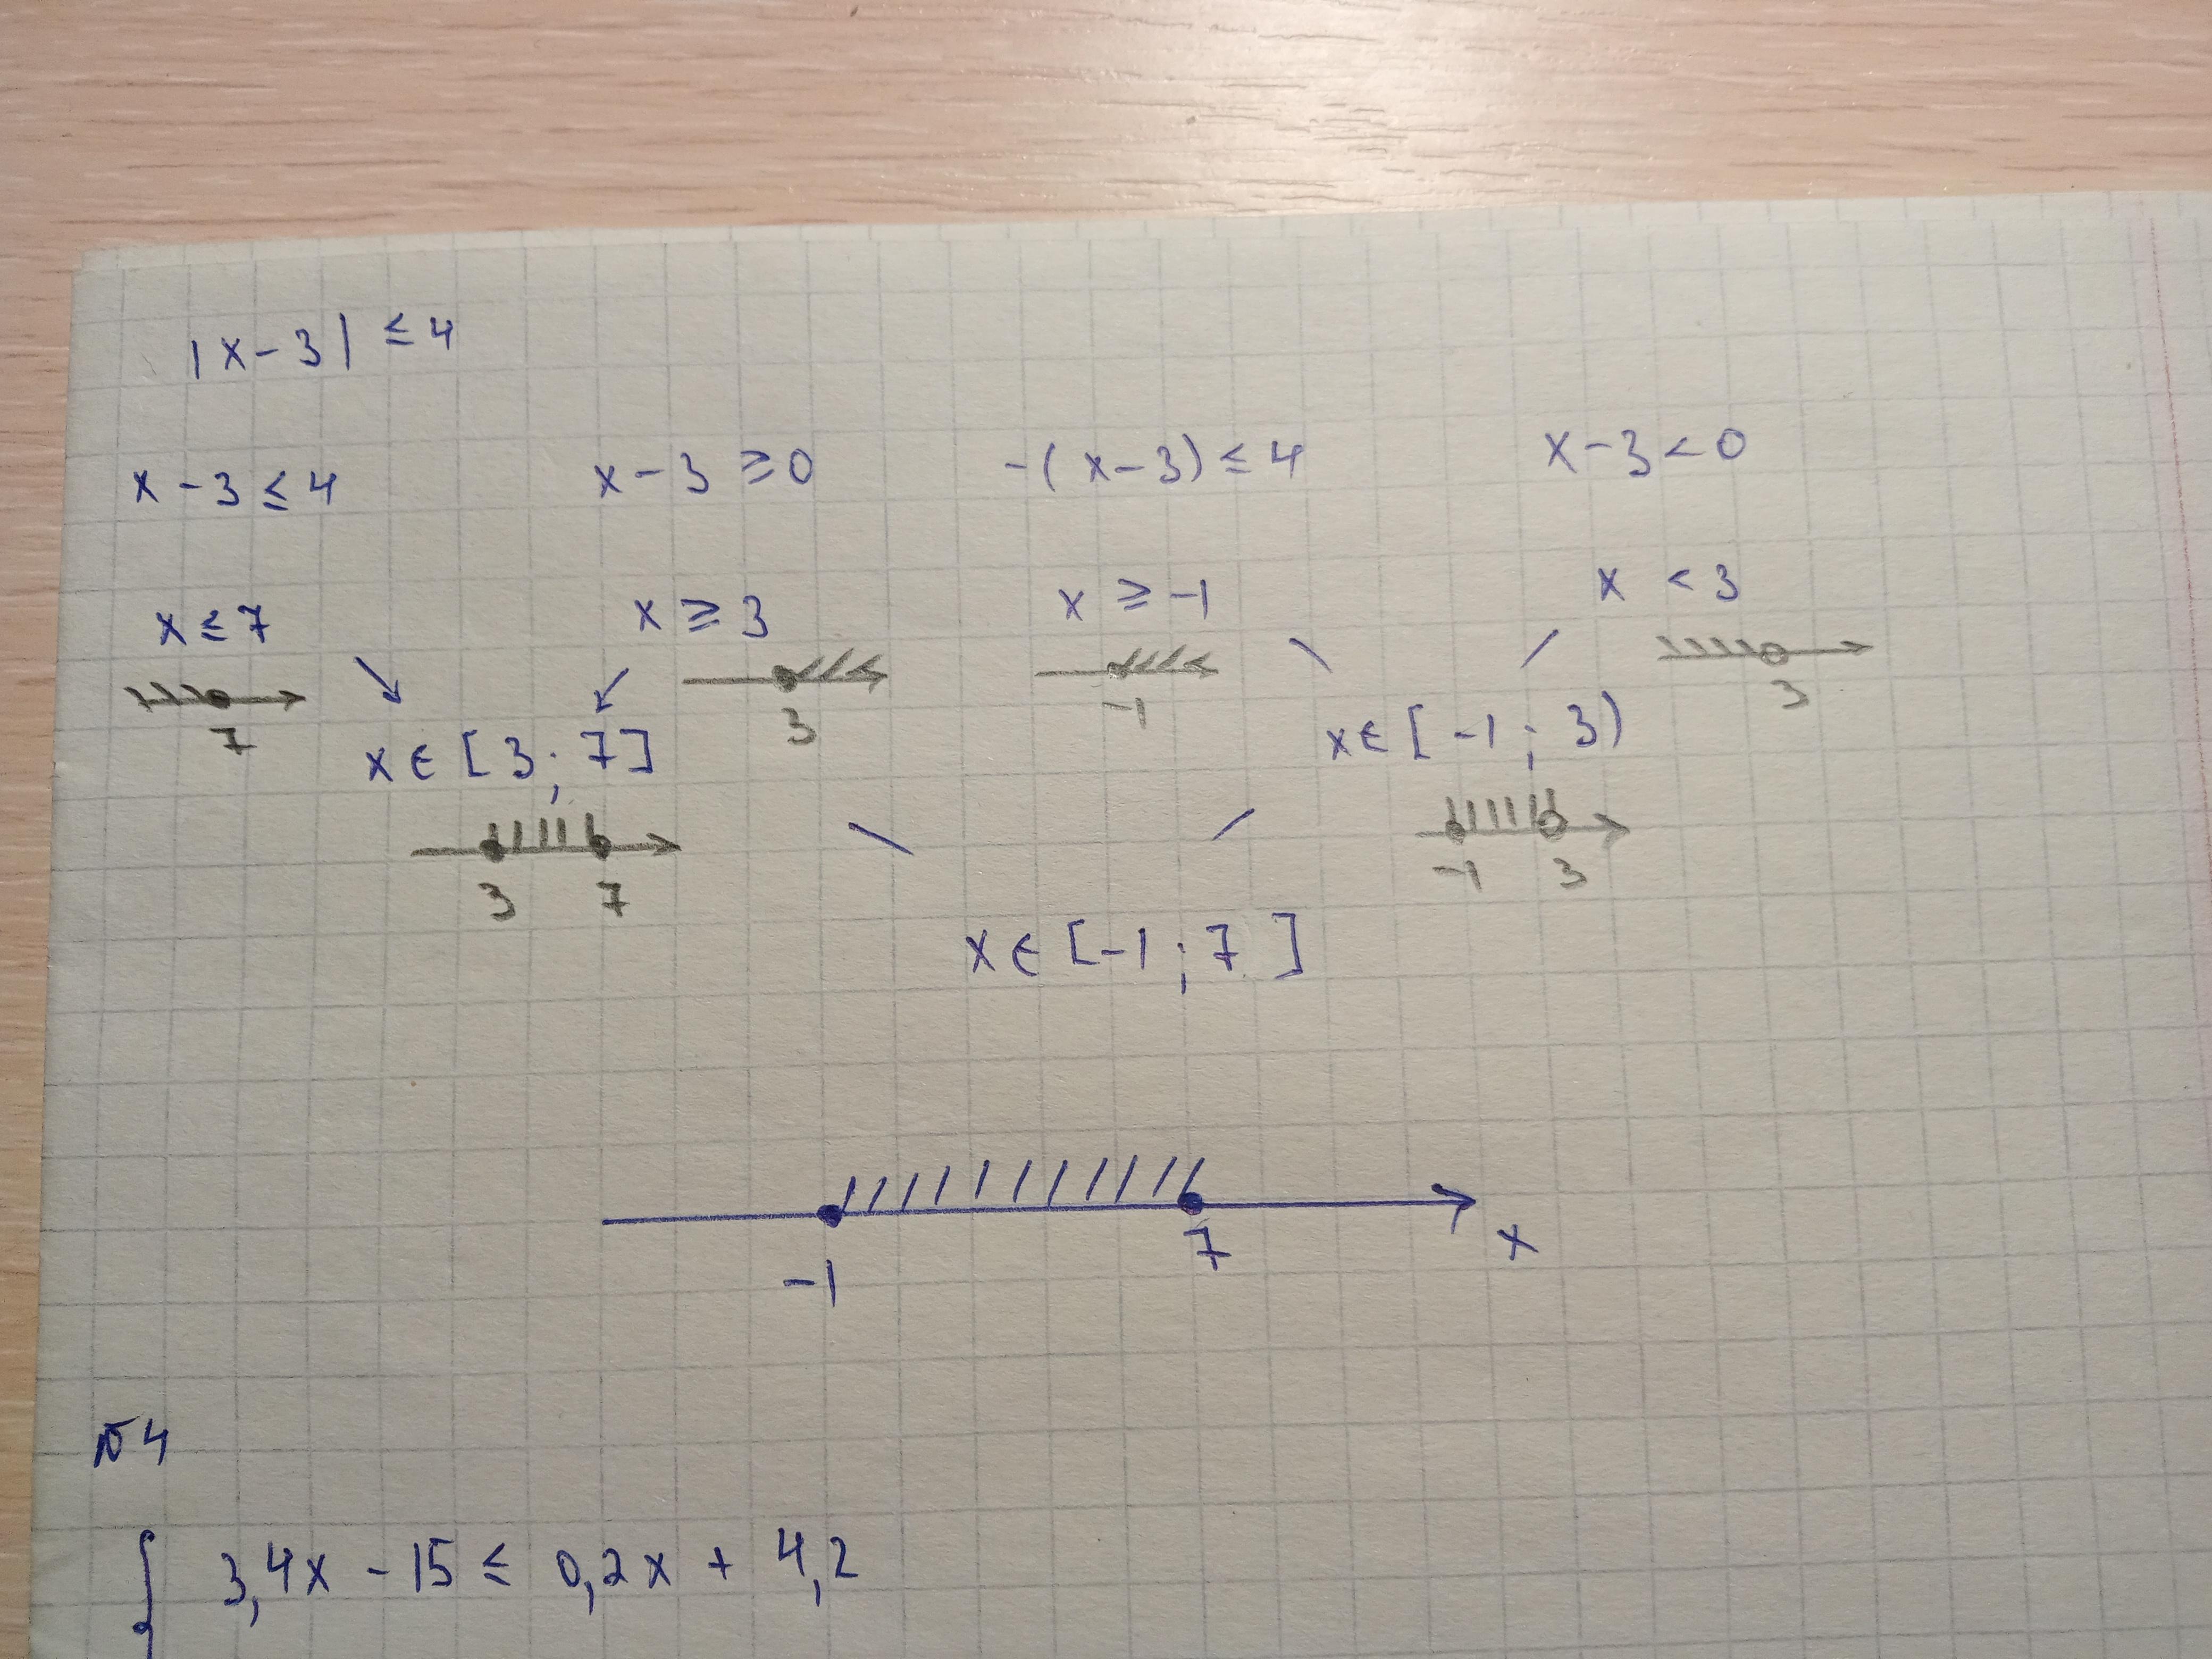 |x-3| ≤ 4
x-3 ≤ 4 x-3 ≥ 0 -(x-3) ≤ 4 x-3 < 0
x ≤ 7 x ≥ 3 x ≥ -1 x < 3
7 3 -1 3
x ∈ [3; 7] x ∈ [-1; 3)
3 7 -1 3
x ∈ [-1; 7]
-1 7 x
№4
{ 3,4x - 15 ≤ 0,2x + 4,2